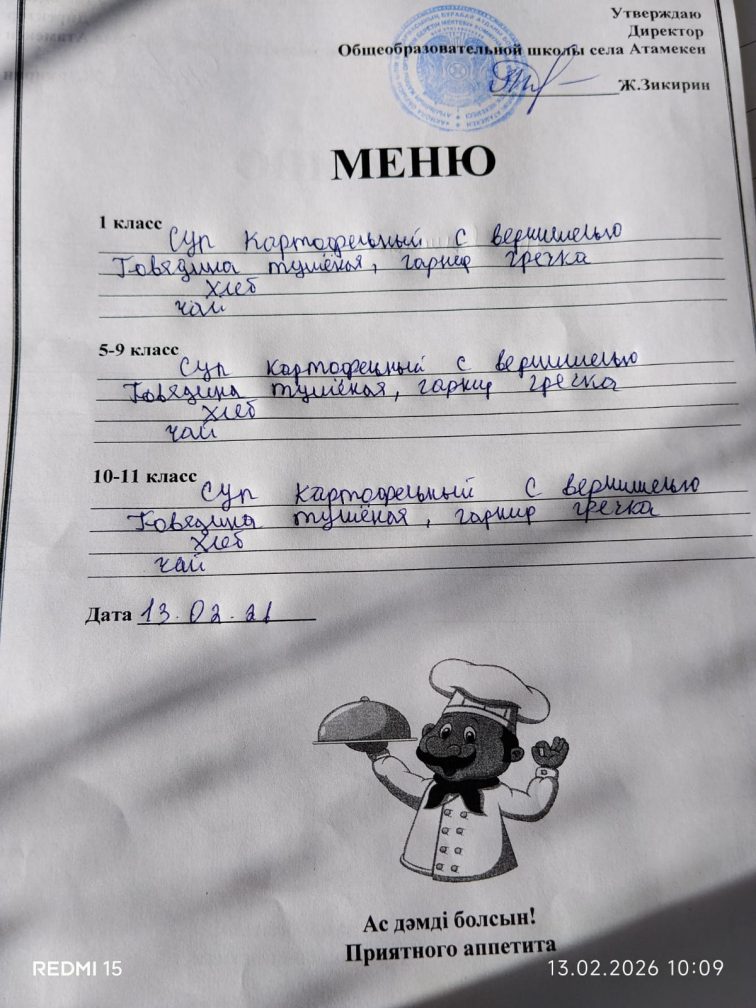 Утверждаю
Директор
Общеобразовательной школы села Атамекен
Ж.Зикирин
МЕНЮ
1 класс
Суп картофельный с вермишелью
Говядина тушёная, гарнир гречка
хлеб
чай
5-9 класс
Суп картофельный с вермишелью
Говядина тушёная, гарнир гречка
хлеб
чай
10-11 класс
Суп картофельный с вермишелью
Говядина тушёная, гарнир гречка
хлеб
чай
Дата 13.02.26
Ас дәмді болсын!
Приятного аппетита
REDMI 15
13.02.2026 10:09